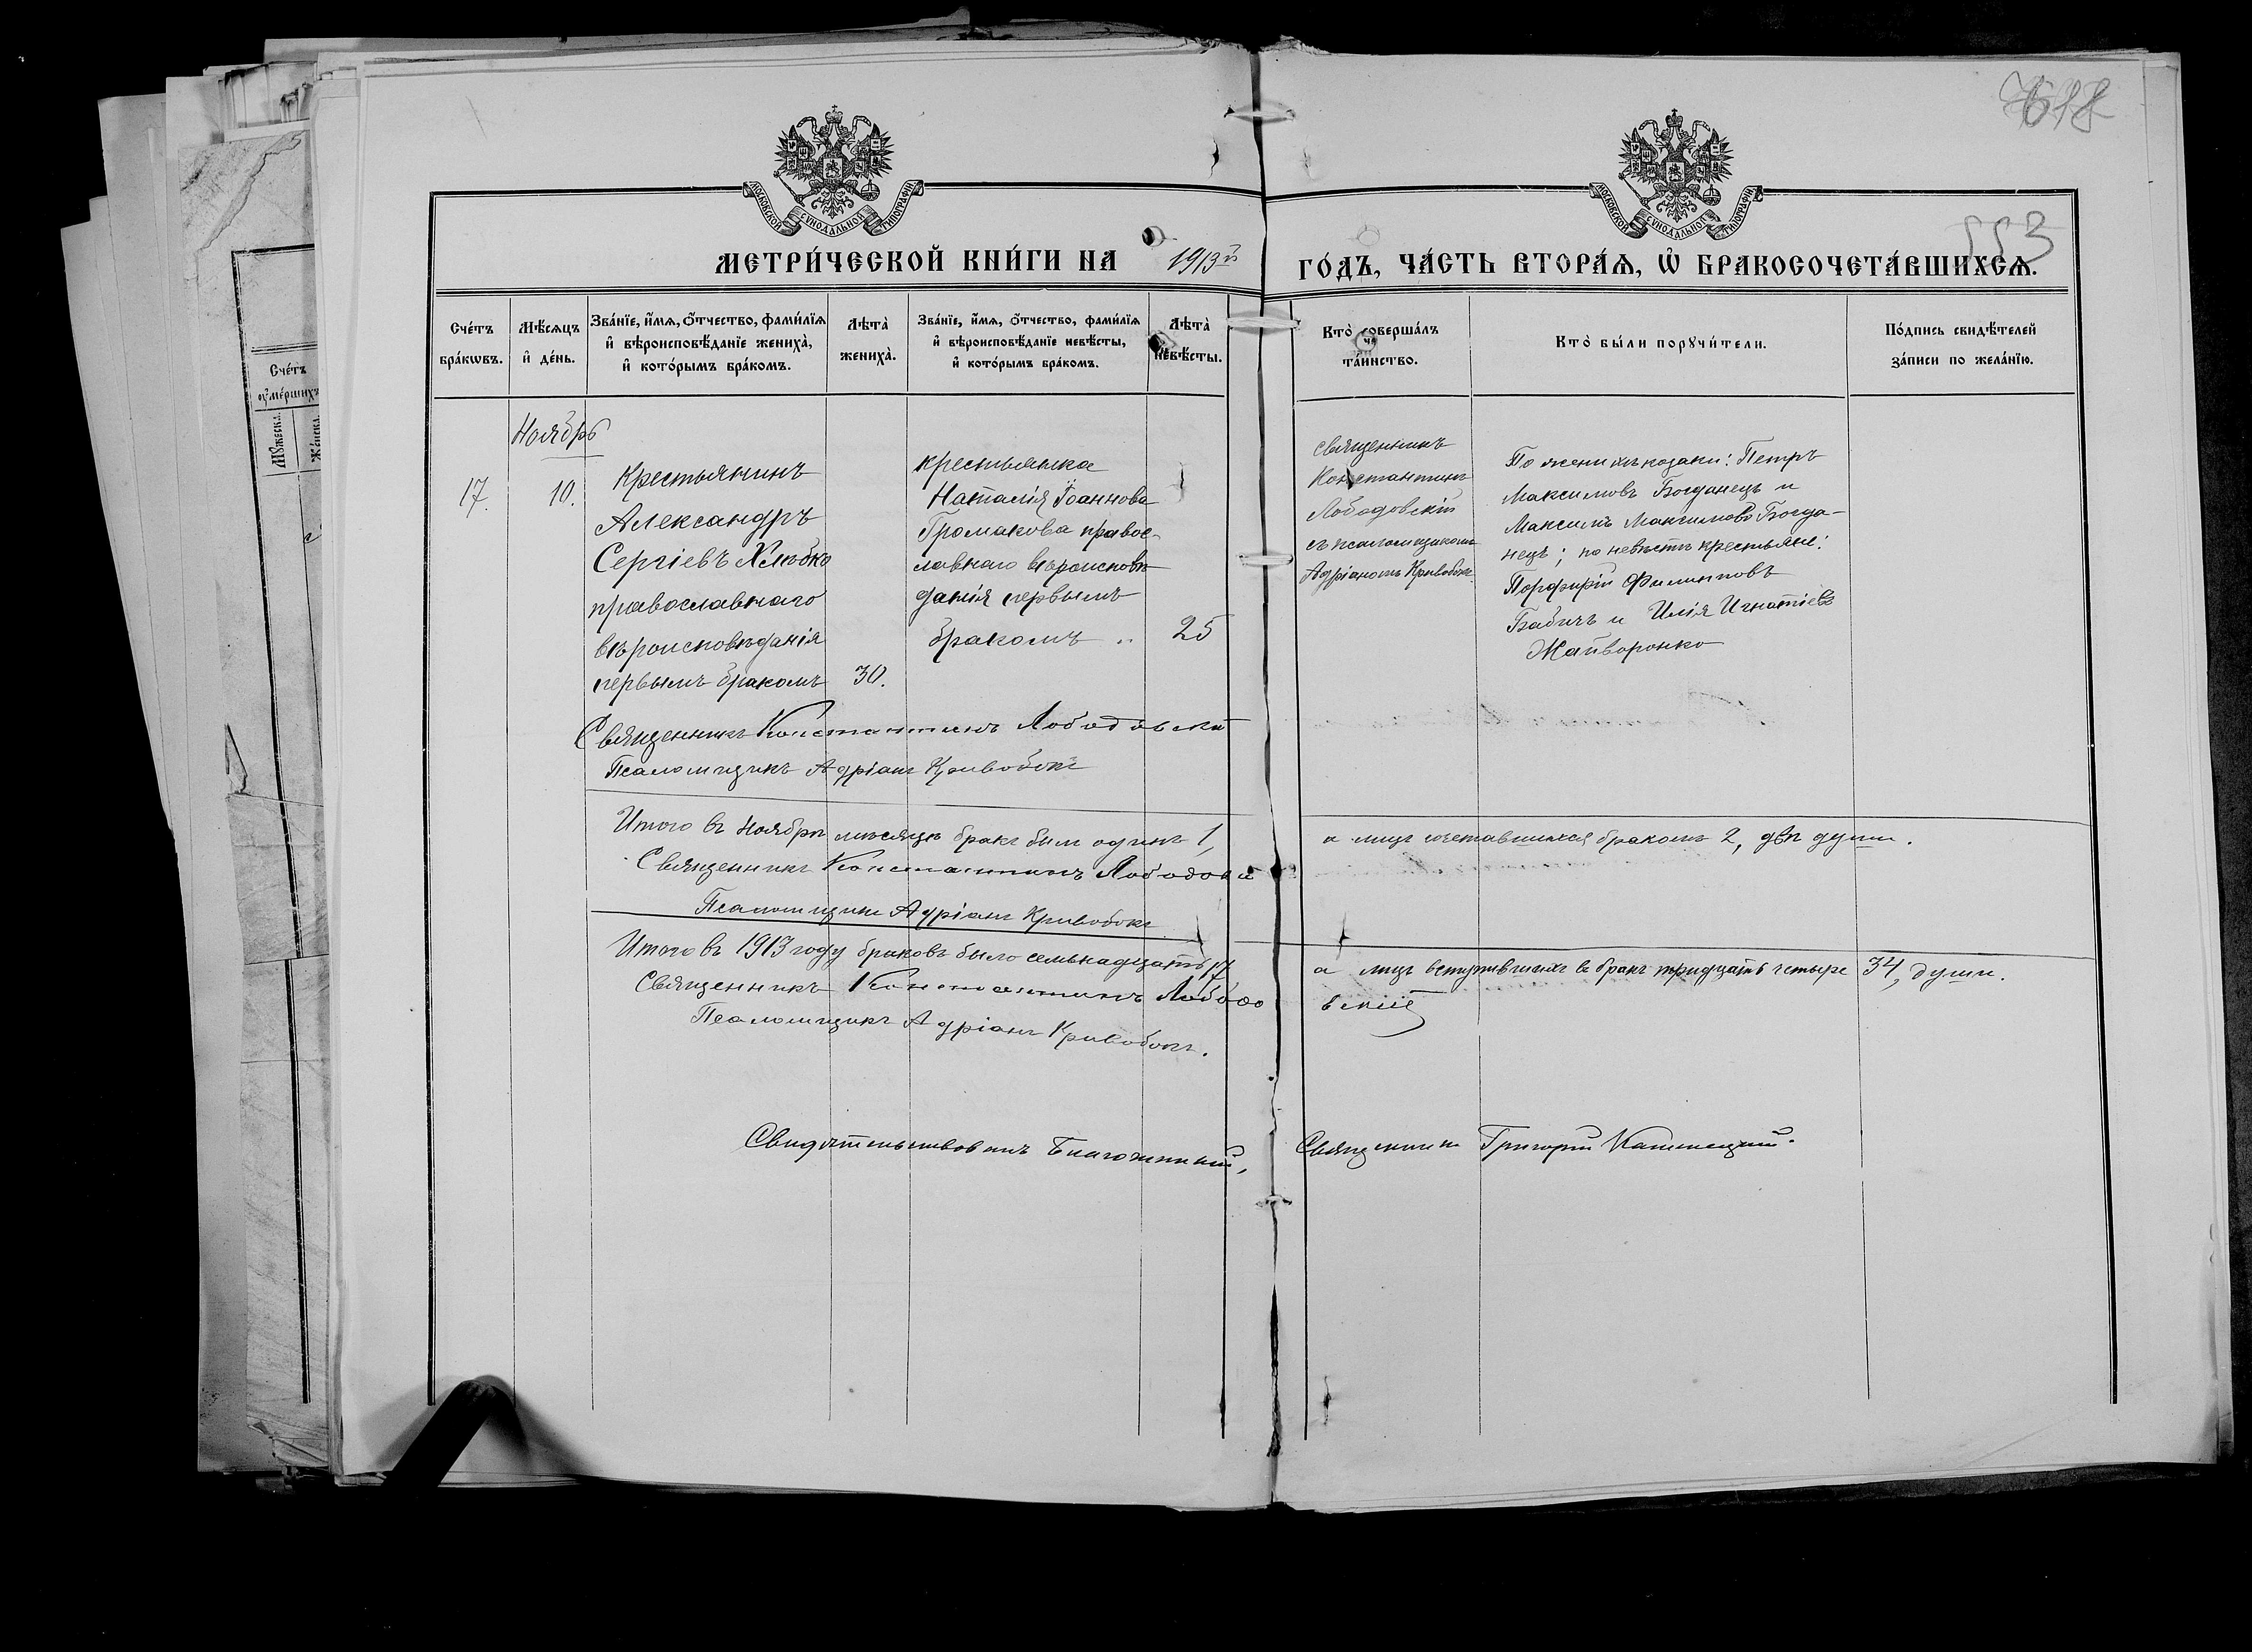 553
МОСКОВСКОЙ СѴНОДАЛЬНОЙ ТИПОГРАФІИ
МОСКОВСКОЙ СѴНОДАЛЬНОЙ ТИПОГРАФІИ
МЕТРИ́ЧЕСКОЙ КНИ́ГИ НА 1913й ГО́ДЪ, ЧА́СТЬ ВТОРА́Ѧ, Ѡ҆ БРАКОСОЧЕТА́ВШИХСѦ.
Сче́тъ бра́кѡвъ.
Мѣ́сѧцъ и҆ де́нь.
Зва́нїе, и҆́мѧ, ѻ҆́тчество, фами́лїѧ
и҆ вѣроисповѣ́данїе жениха̀,
и҆ кото́рымъ бра́комъ.
Лѣта̀ жениха̀.
Зва́нїе, и҆́мѧ, ѻ҆́тчество, фами́лїѧ
и҆ вѣроисповѣ́данїе невѣ́сты,
и҆ кото́рымъ бра́комъ.
Лѣта̀ невѣ́сты.
Кто̀ соверша́лъ
та́инство.
Кто̀ бы́ли порꙋчи́тели.
По́дпись свидѣ́телей
за́писи по жела́нїю.
Сче́тъ
ᲂу҆ме́ршихъ
Мꙋ́жеска.
Же́нска.
Ноябрь
17.
10.
Крестьянинъ
Александръ
Сергіевъ Хлѣбко
православнаго
вѣроисповѣданія
первымъ бракомъ
30.
крестьянка
Наталія Іоаннова
Громакова правос-
лавнаго вѣроисповѣ
данія первымъ
бракомъ ..
25
священникъ
Константинъ
Лободовскій
съ псаломщикомъ
Адріаномъ Кривобок
По женихѣ козаки: Петръ
Максимовъ Богданецъ и
Максимъ Максимовъ Богда-
нецъ; по невѣстѣ крестьяне:
Порфирій Филипповъ
Бабичъ и Илія Игнатіевъ
Жайворонко
Священникъ Константинъ Лободовскій
Псаломщикъ Адріанъ Кривобокъ
Итого въ Ноябрѣ мѣсяцѣ бракъ былъ одинъ 1, а лицъ сочетавшихся бракомъ 2, двѣ души.
Священникъ Константинъ Лободовс
Псаломщикъ Адріанъ Кривобокъ
Итого въ 1913 году браковъ было семьнадцать 17 а лицъ вступившихъ въ бракъ тридцать четыре 34, души.
Священникъ Константинъ Лободовскій
Псаломщикъ Адріанъ Кривобокъ.
Свидѣтельствовалъ Благочинный, Священникъ Григорій